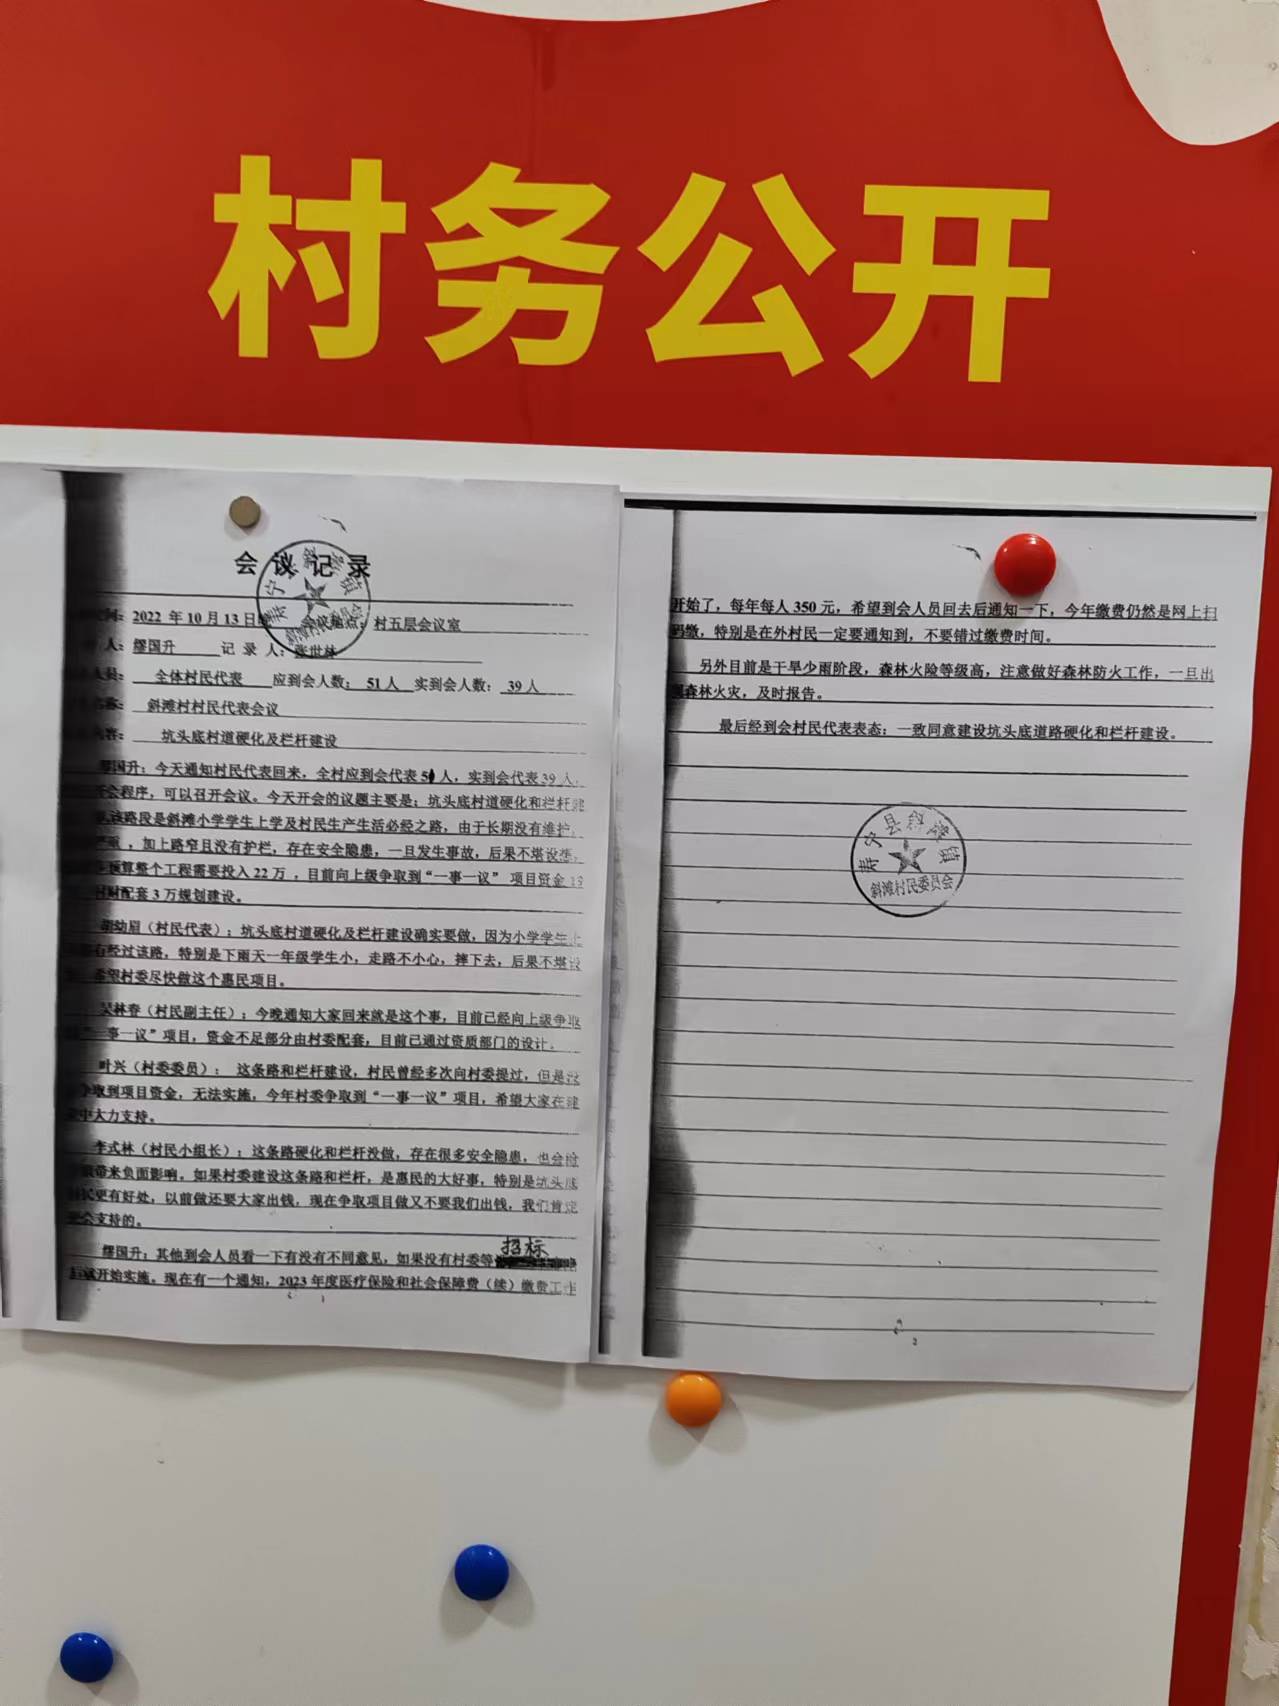 村务公开
会议记录
间：2022 年 10 月 13 日 会议地点：村五层会议室
人：缪国升 记 录 人：张世林
人员： 全体村民代表 应到会人数：51人 实到会人数：39人
名称： 斜滩村村民代表会议
内容： 坑头底村道硬化及栏杆建设
缪国升：今天通知村民代表回来，全村应到会代表51人，实到会代表39人，
开会程序，可以召开会议。今天开会的议题主要是：坑头底村道硬化和栏杆建
该路段是斜滩小学学生上学及村民生产生活必经之路，由于长期没有维护，
严重，加上路窄且没有护栏，存在安全隐患，一旦发生事故，后果不堪设想，
预算整个工程需要投入 22 万，目前向上级争取到“一事一议” 项目资金 19
村财配套 3 万规划建设。
胡幼眉（村民代表）：坑头底村道硬化及栏杆建设确实要做，因为小学学生上
有经过该路，特别是下雨天一年级学生小，走路不小心，摔下去，后果不堪设
希望村委尽快做这个惠民项目。
吴林春（村民副主任）：今晚通知大家回来就是这个事，目前已经向上级争取
“一事一议”项目，资金不足部分由村委配套，目前已通过资质部门的设计。
叶兴（村委委员）： 这条路和栏杆建设，村民曾经多次向村委提过，但是没
争取到项目资金，无法实施，今年村委争取到“一事一议”项目，希望大家在建
中大力支持。
李式林（村民小组长）：这条路硬化和栏杆没做，存在很多安全隐患，也会给
带来负面影响，如果村委建设这条路和栏杆，是惠民的大好事，特别是坑头底
村民更有好处，以前做还要大家出钱，现在争取项目做又不要我们出钱，我们肯定
会支持的。
招标
缪国升：其他到会人员看一下有没有不同意见，如果没有村委等
后就开始实施。现在有一个通知，2023 年度医疗保险和社会保障费（续）缴费工作
1
开始了，每年每人 350 元，希望到会人员回去后通知一下，今年缴费仍然是网上扫
码缴，特别是在外村民一定要通知到，不要错过缴费时间。
另外目前是干旱少雨阶段，森林火险等级高，注意做好森林防火工作，一旦出
现森林火灾，及时报告。
最后经到会村民代表表态：一致同意建设坑头底道路硬化和栏杆建设。
寿宁县斜滩镇
斜滩村民委员会
2